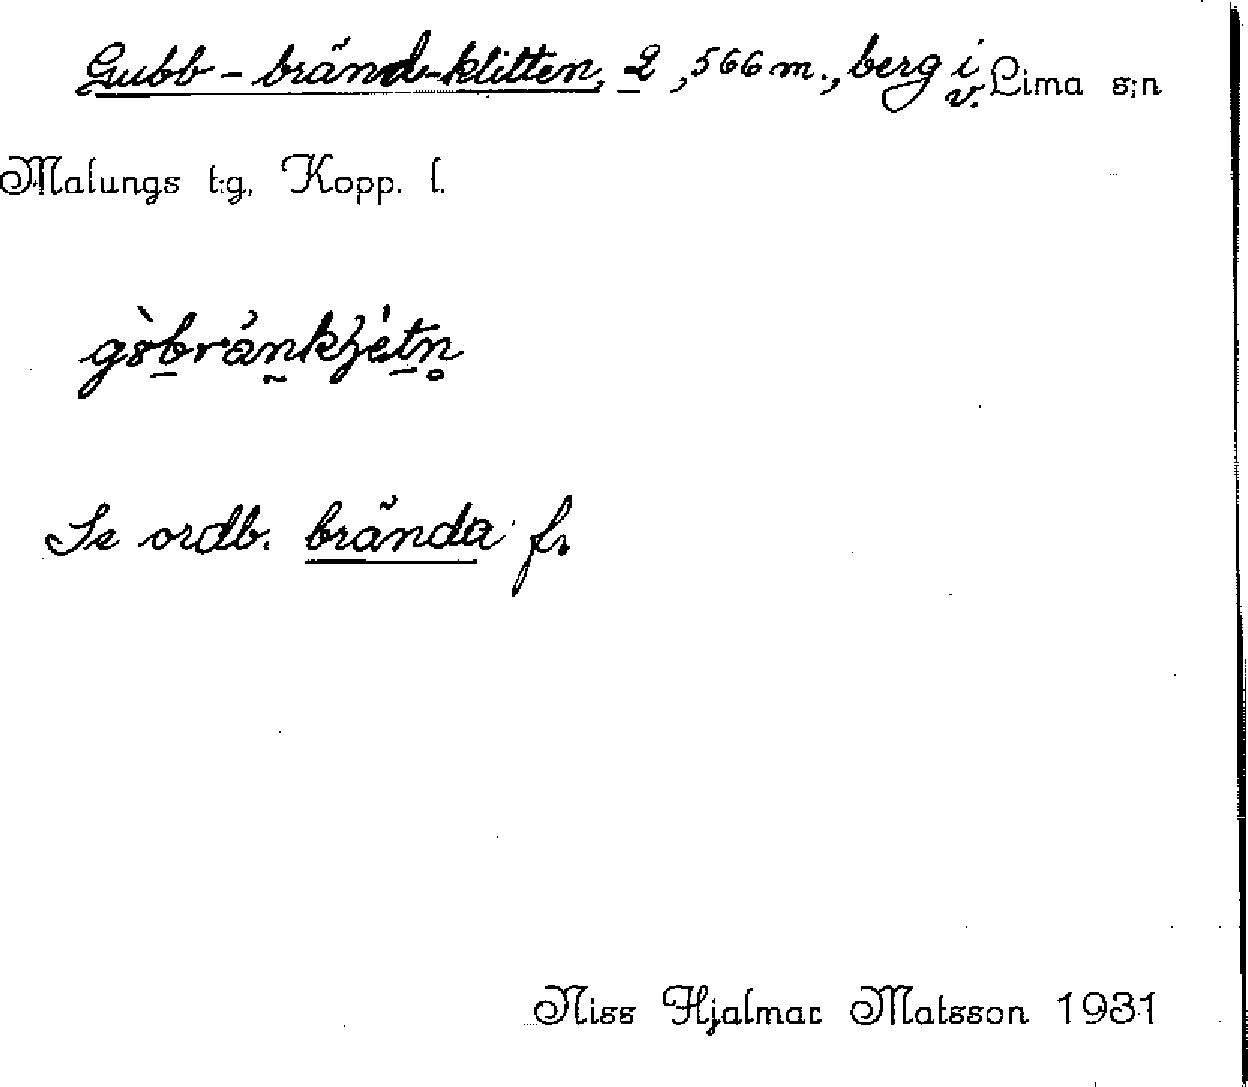 Gubb-bränd-klitten, 2, 566 m., berg i v. Lima s;n
Malungs t:g, Kopp. l.
Se ordb. brända f.
Niss Hjalmar Matsson 1931